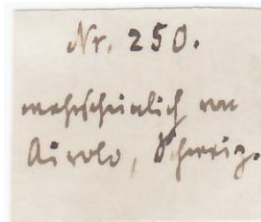 Nr. 250.
wahrscheinlich von
Airolo, Schweiz.